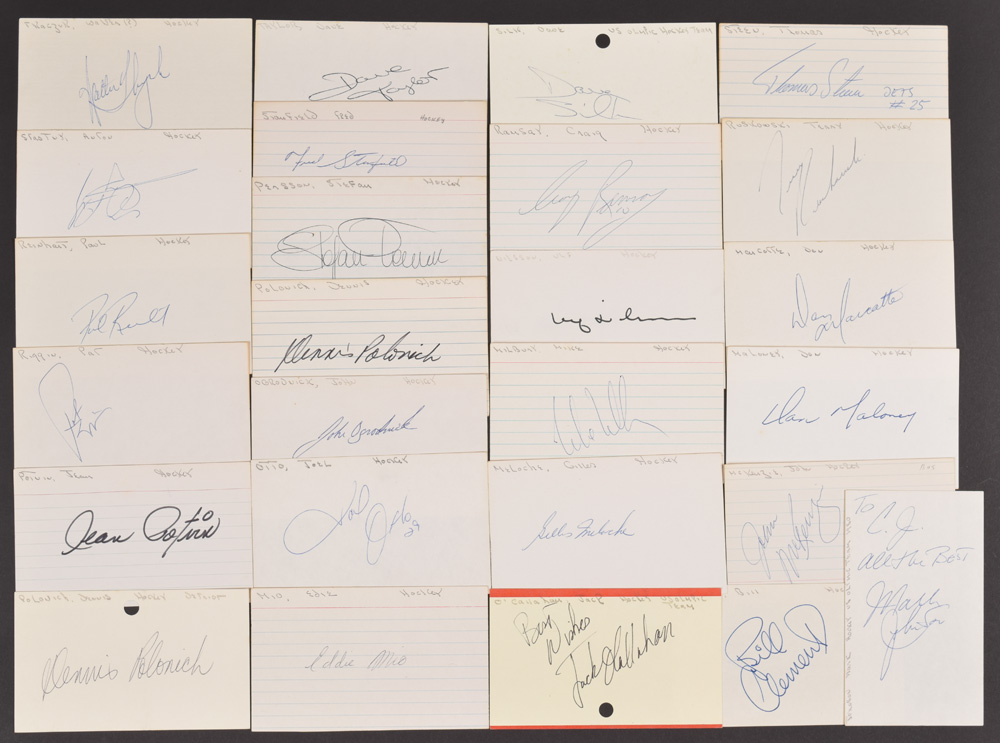 Tkaczuk, Walter Hockey
Walter Tkaczuk
Stastny, Anton Hockey
Reinhart, Paul Hockey
Paul Reinhart
Riggin, Pat Hockey
Potvin, Jean Hockey
Jean Potvin
Polonich, Dennis Hockey
Dennis Polonich
Hockey
Dave Taylor
Stanfield Fred Hockey
Fred Stanfield
Persson, Stefan Hockey
Stefan Persson
Polonich, Dennis Hockey
Dennis Polonich
Ogrodnick, John Hockey
John Ogrodnick
Otto, Joel Hockey
Joel Otto
29
Mio, Eddie Hockey
Eddie Mio
Silk, Dave US Olympic Hockey Team
Dave
Silk
Ramsay, Craig Hockey
Craig Ramsay
10
Nilsson, Ulf Hockey
Ulf Nilsson
Hockey
Meloche, Gilles Hockey
Gilles Meloche
O'Callahan, Jack Hockey Olympic
Team
Best
Wishes
Jack O'Callahan
Steen, Thomas Hockey
Thomas Steen JETS
#25
Ruskowski, Terry Hockey
Terry Ruskowski
Marcotte, Don Hockey
Don
Marcotte
Maloney, Don Hockey
Don Maloney
McKenzie, John Hockey
John
McKenzie
Bill
Bill
Clement
To
C.J.
All the Best
Mark
Johnson